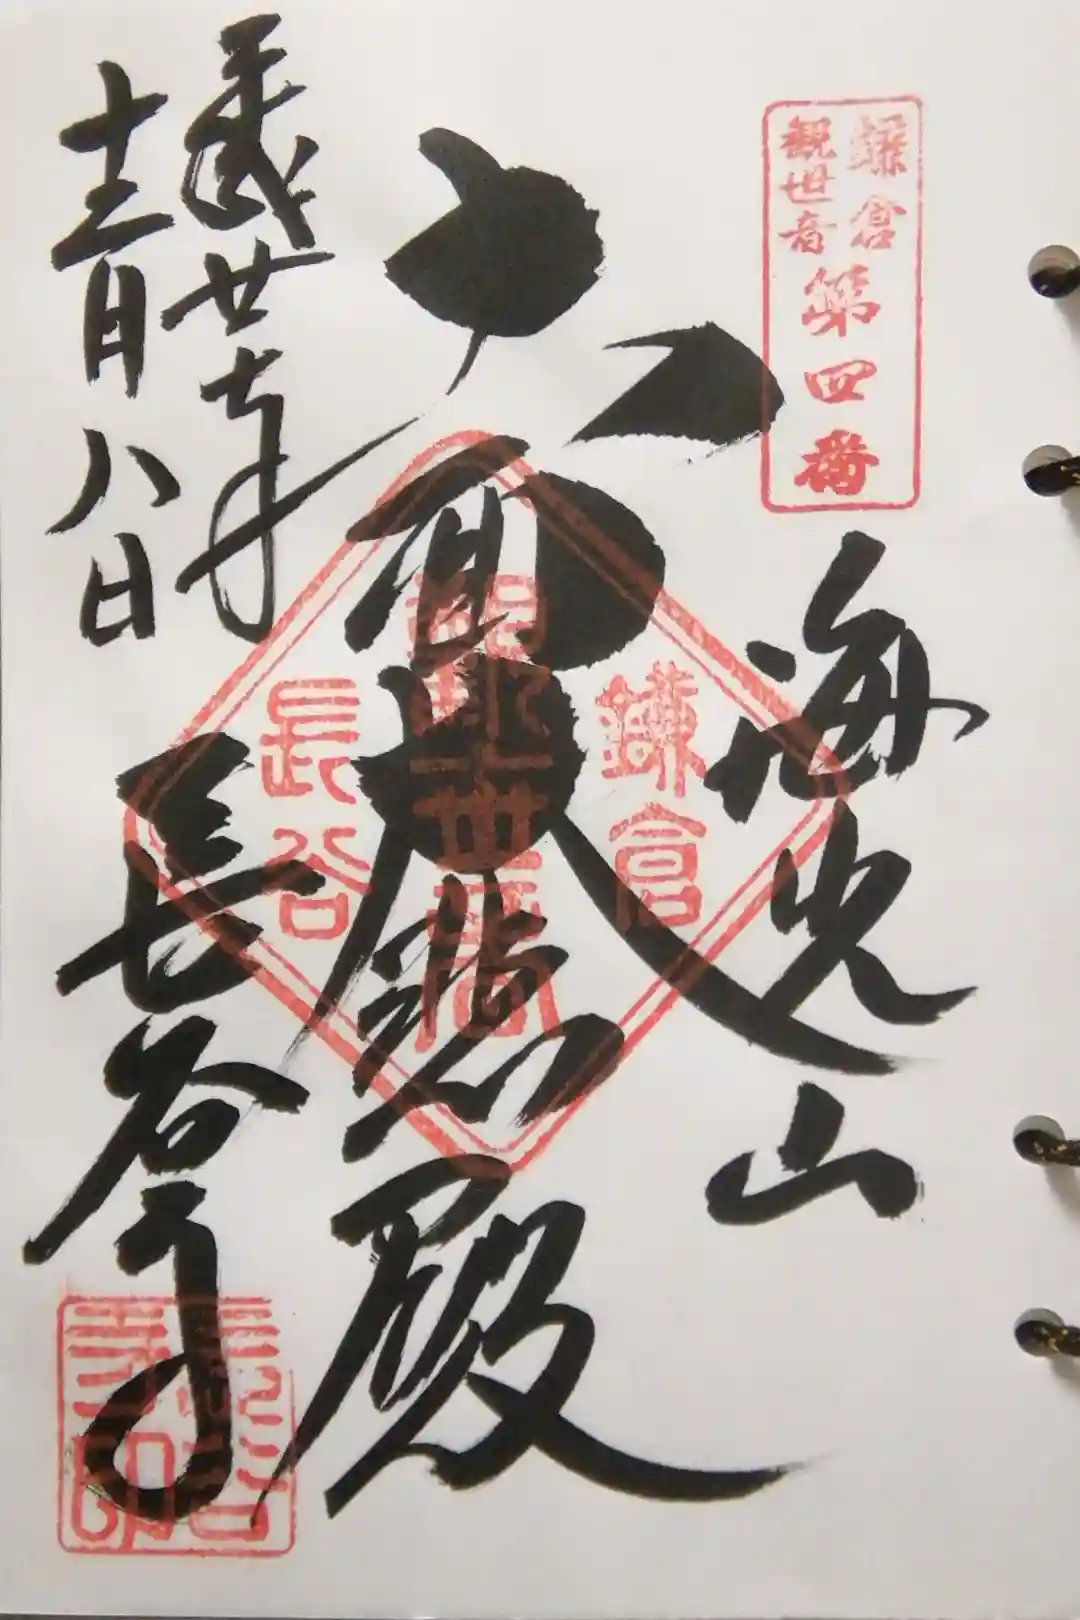 鎌倉
観世音
第四番
海光山
十一面大悲殿
鎌倉
觀世音
長谷
平成廿七年
十二月八日
長谷寺
長谷
寺印